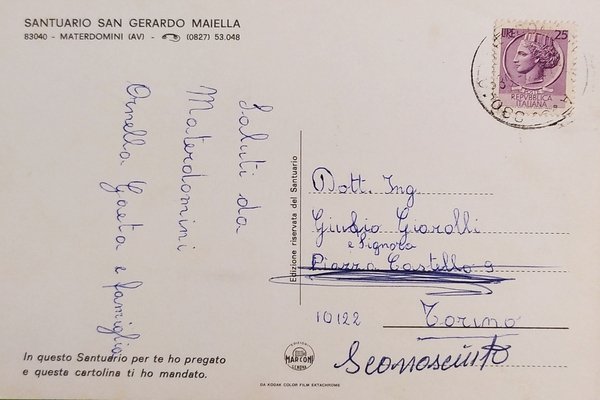 SANTUARIO SAN GERARDO MAIELLA
83040 - MATERDOMINI (AV) - (0827) 53.048
LIRE 25
POSTE
REPVBBLICA
ITALIANA
Saluti da
Materdomini
Ornella Gaeta e famiglia
Edizione riservata del Santuario
Dott. Ing.
Giulio Giarolli
e Signora
Piazza Castello 9
10122 Torino
Sconosciuto
In questo Santuario per te ho pregato
e questa cartolina ti ho mandato.
MARCONI
GENOVA
DA KODAK COLOR FILM EKTACHROME